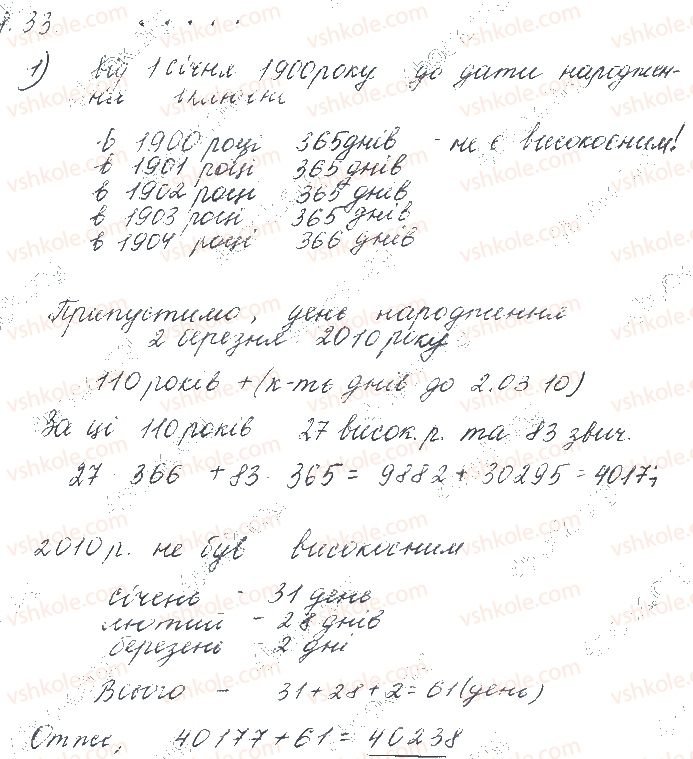 1) Від 1 січня 1900 року до дати народжен-
ня включно
в 1900 році 365 днів - не є високосним!
в 1901 році 365 днів
в 1902 році 365 днів
в 1903 році 365 днів
в 1904 році 366 днів
Припустимо, день народження
2 березня 2010 року
110 років + (к-ть днів до 2.03 10)
За ці 110 років 27 висок. р. та 83 звич.
27 · 366 + 83 · 365 = 9882 + 30295 = 40177;
2010 р. не був високосним
січень - 31 день
лютий - 28 днів
березень 2 дні
Всього - 31 + 28 + 2 = 61 (день)
Отже, 40177 + 61 = 40238